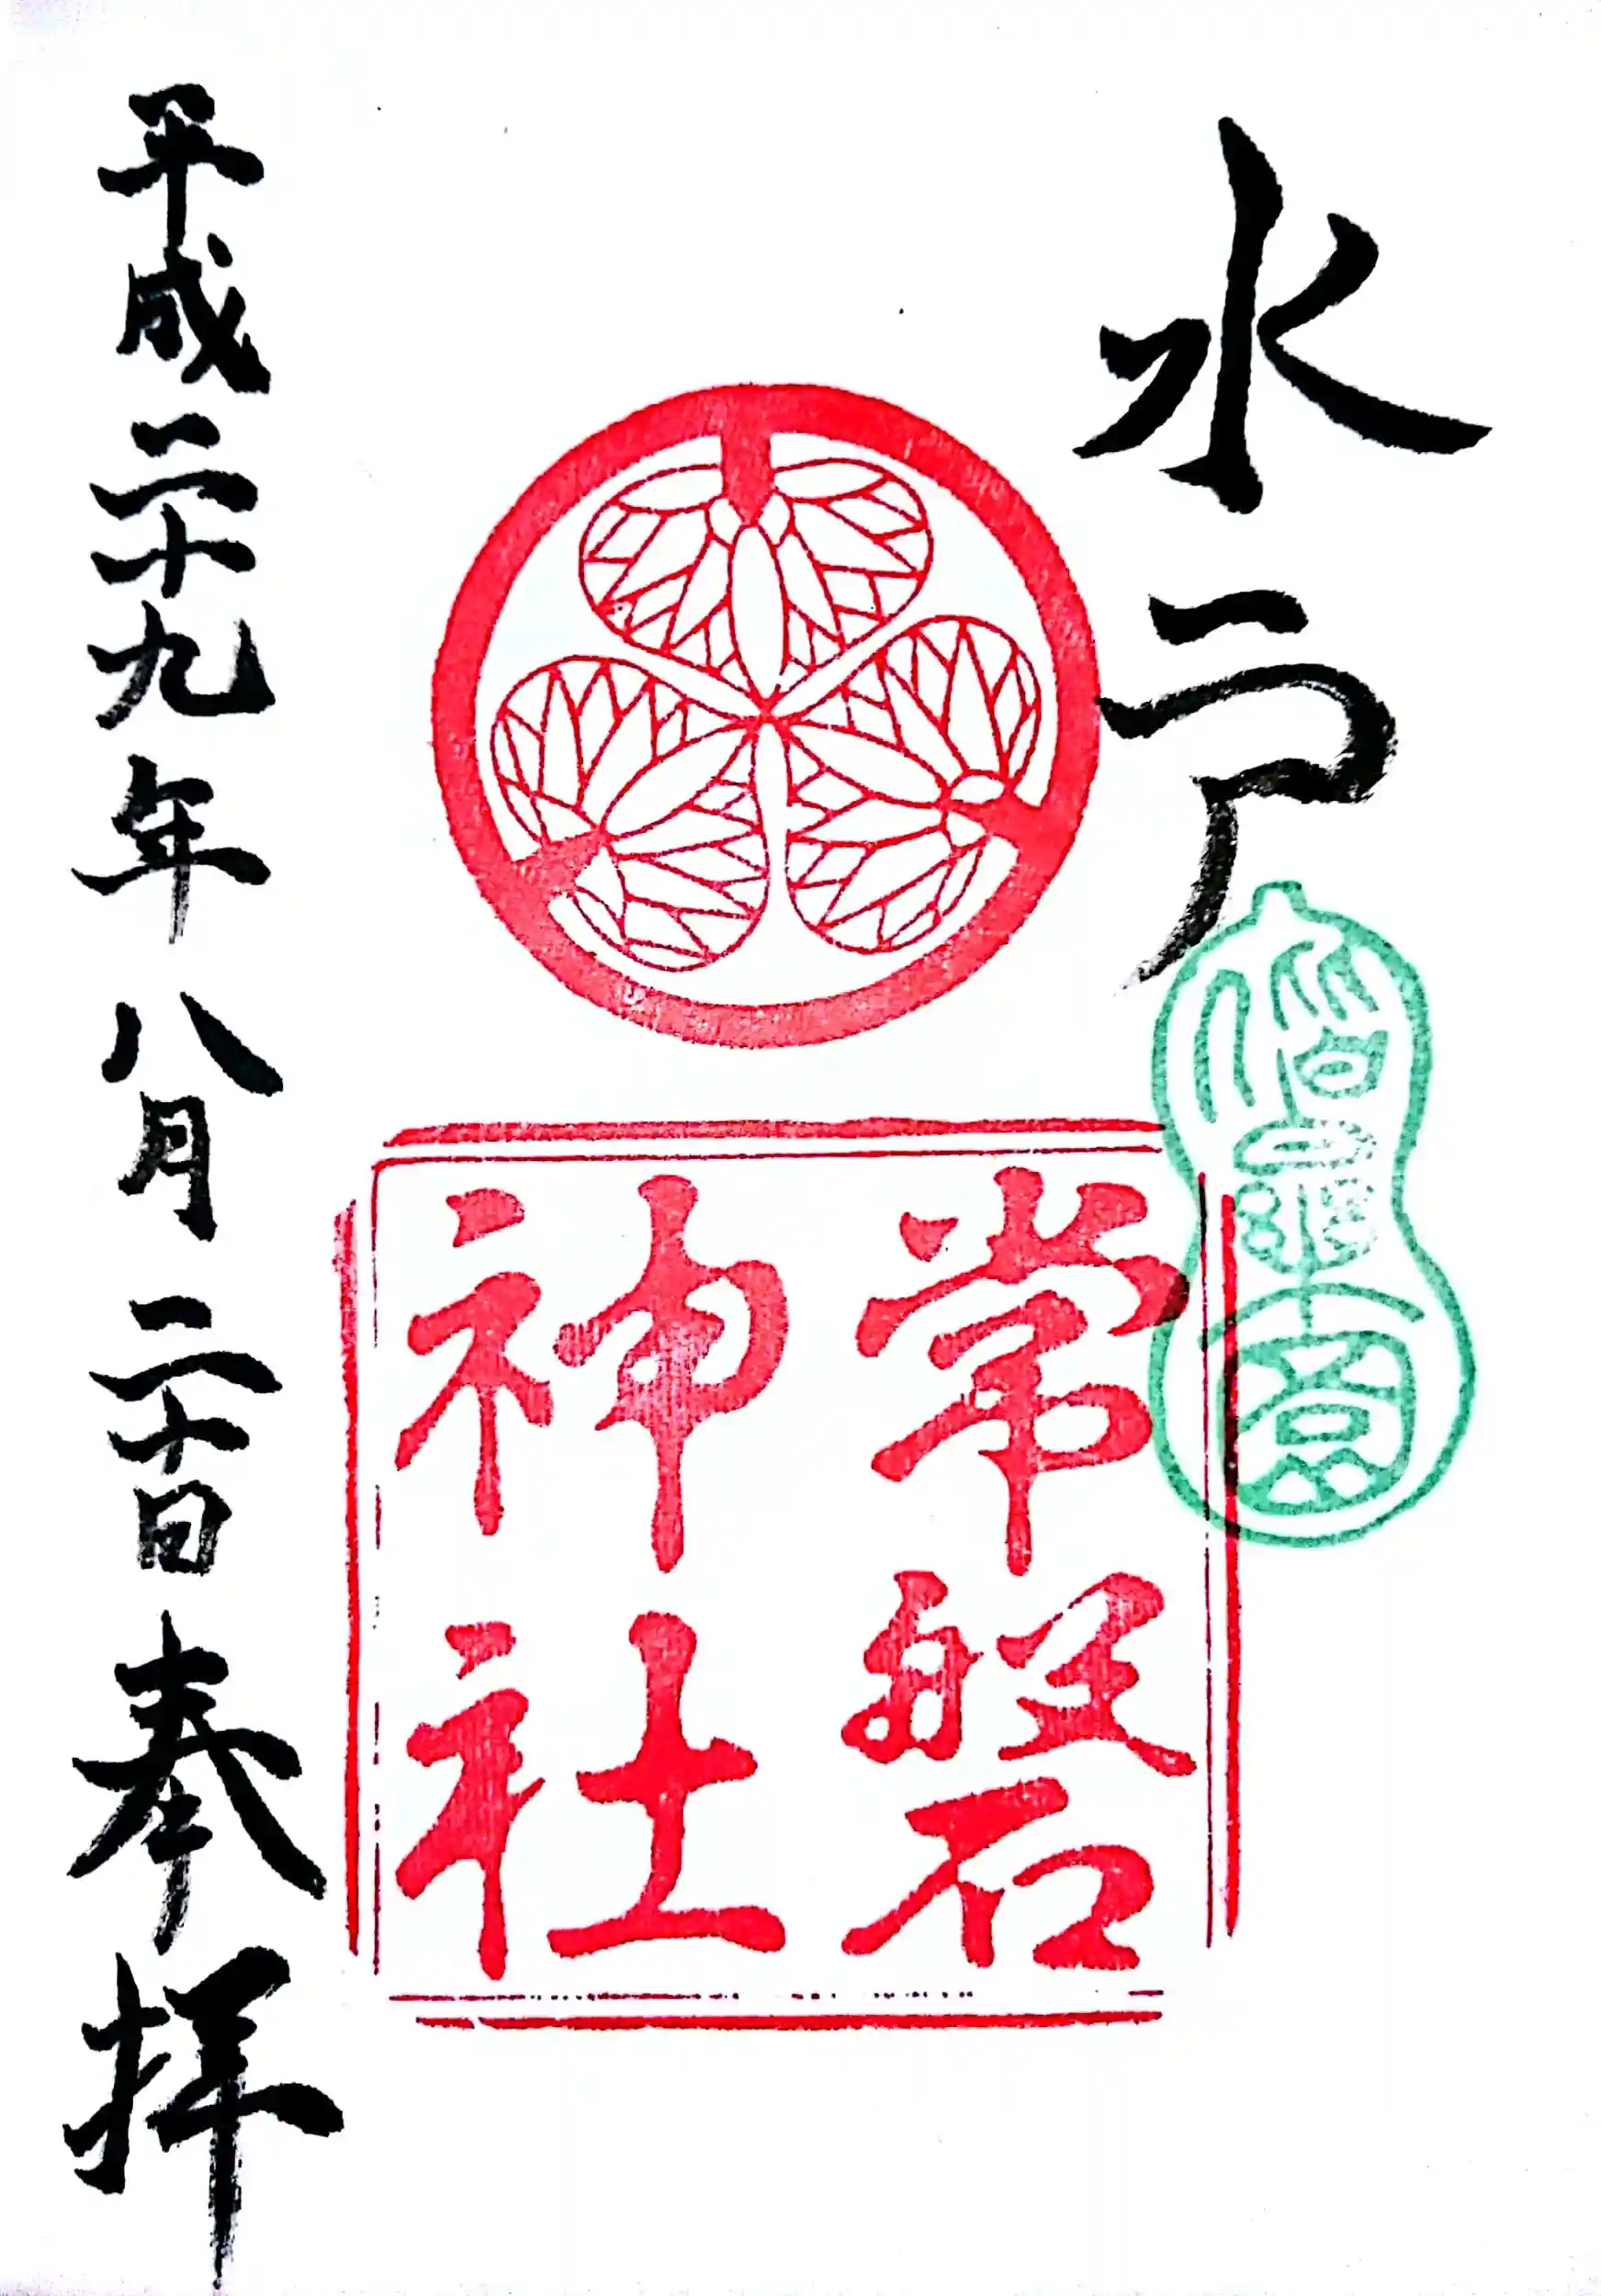 水戸
偕樂園
常磐
神社
平成二十九年八月二十日奉拝